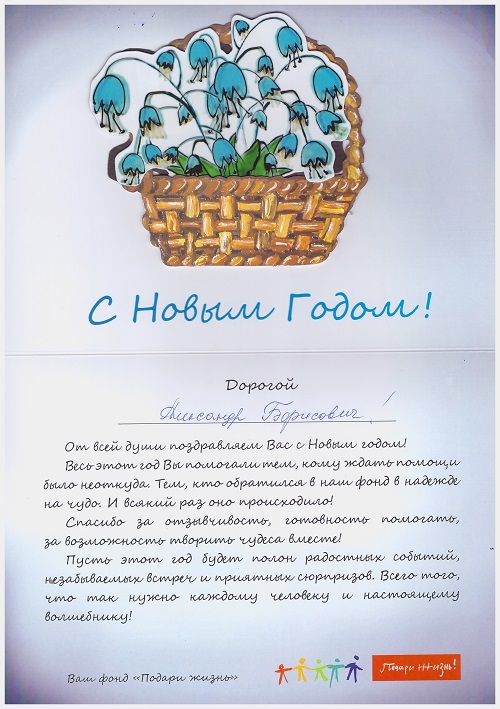 С Новым Годом!
Дорогой
Александр Борисович!
От всей души поздравляем Вас с Новым годом!
Весь этот год Вы помогали тем, кому ждать помощи
было неоткуда. Тем, кто обратился в наш фонд в надежде
на чудо. И всякий раз оно происходило!
Спасибо за отзывчивость, готовность помогать,
за возможность творить чудеса вместе!
Пусть этот год будет полон радостных событий,
незабываемых встреч и приятных сюрпризов. Всего того,
что так нужно каждому человеку и настоящему
волшебнику!
Ваш фонд «Подари жизнь»
Подари жизнь!